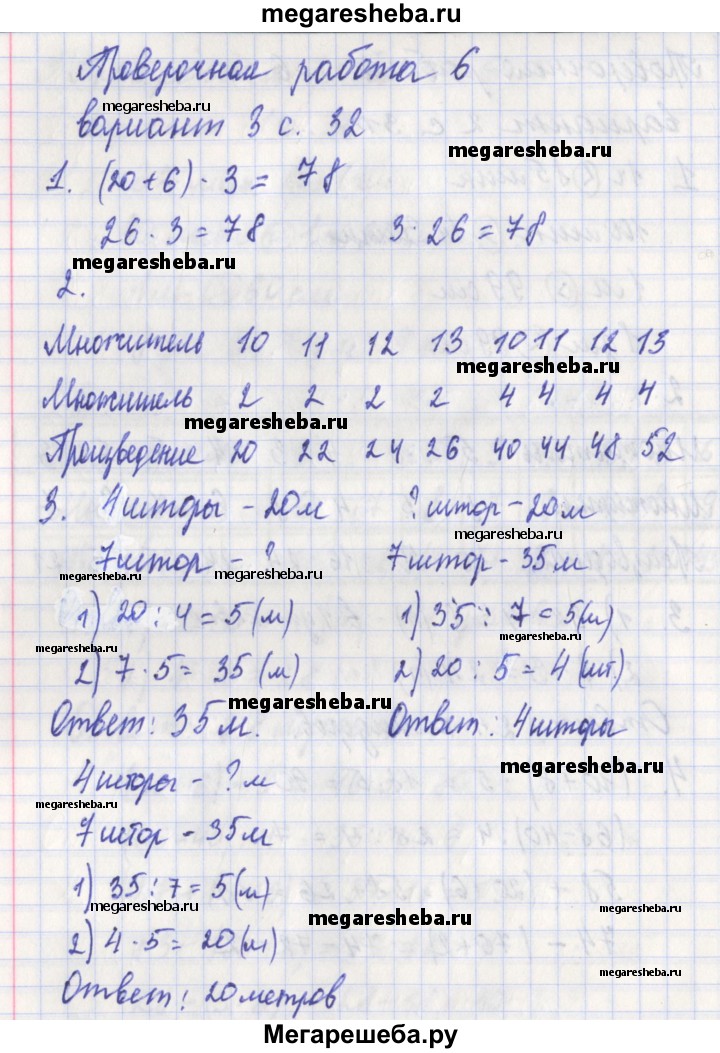 megaresheba.ru
Проверочная работа 6
megaresheba.ru
вариант 3 с. 32
megaresheba.ru
1. (20+6) · 3 = 78
26 · 3 = 78 3 · 26 = 78
megaresheba.ru
2.
Множитель 10 11 12 13 10 11 12 13
megaresheba.ru
Множитель 2 2 2 2 4 4 4 4
megaresheba.ru
Произведение 20 22 24 26 40 44 48 52
3. 4 шторы - 20 м ? штор - 20 м
megaresheba.ru
7 штор - ? 7 штор - 35 м
megaresheba.ru megaresheba.ru
1) 20 : 4 = 5 (м) 1) 35 : 7 = 5 (м)
megaresheba.ru
megaresheba.ru
2) 7 · 5 = 35 (м) 2) 20 : 5 = 4 (шт.)
megaresheba.ru
Ответ: 35 м. Ответ: 4 шторы
megaresheba.ru
4 шторы - ? м
megaresheba.ru
7 штор - 35 м
1) 35 : 7 = 5 (м)
megaresheba.ru megaresheba.ru
megaresheba.ru
2) 4 · 5 = 20 (м)
megaresheba.ru
Ответ: 20 метров
Мегарешеба.ру